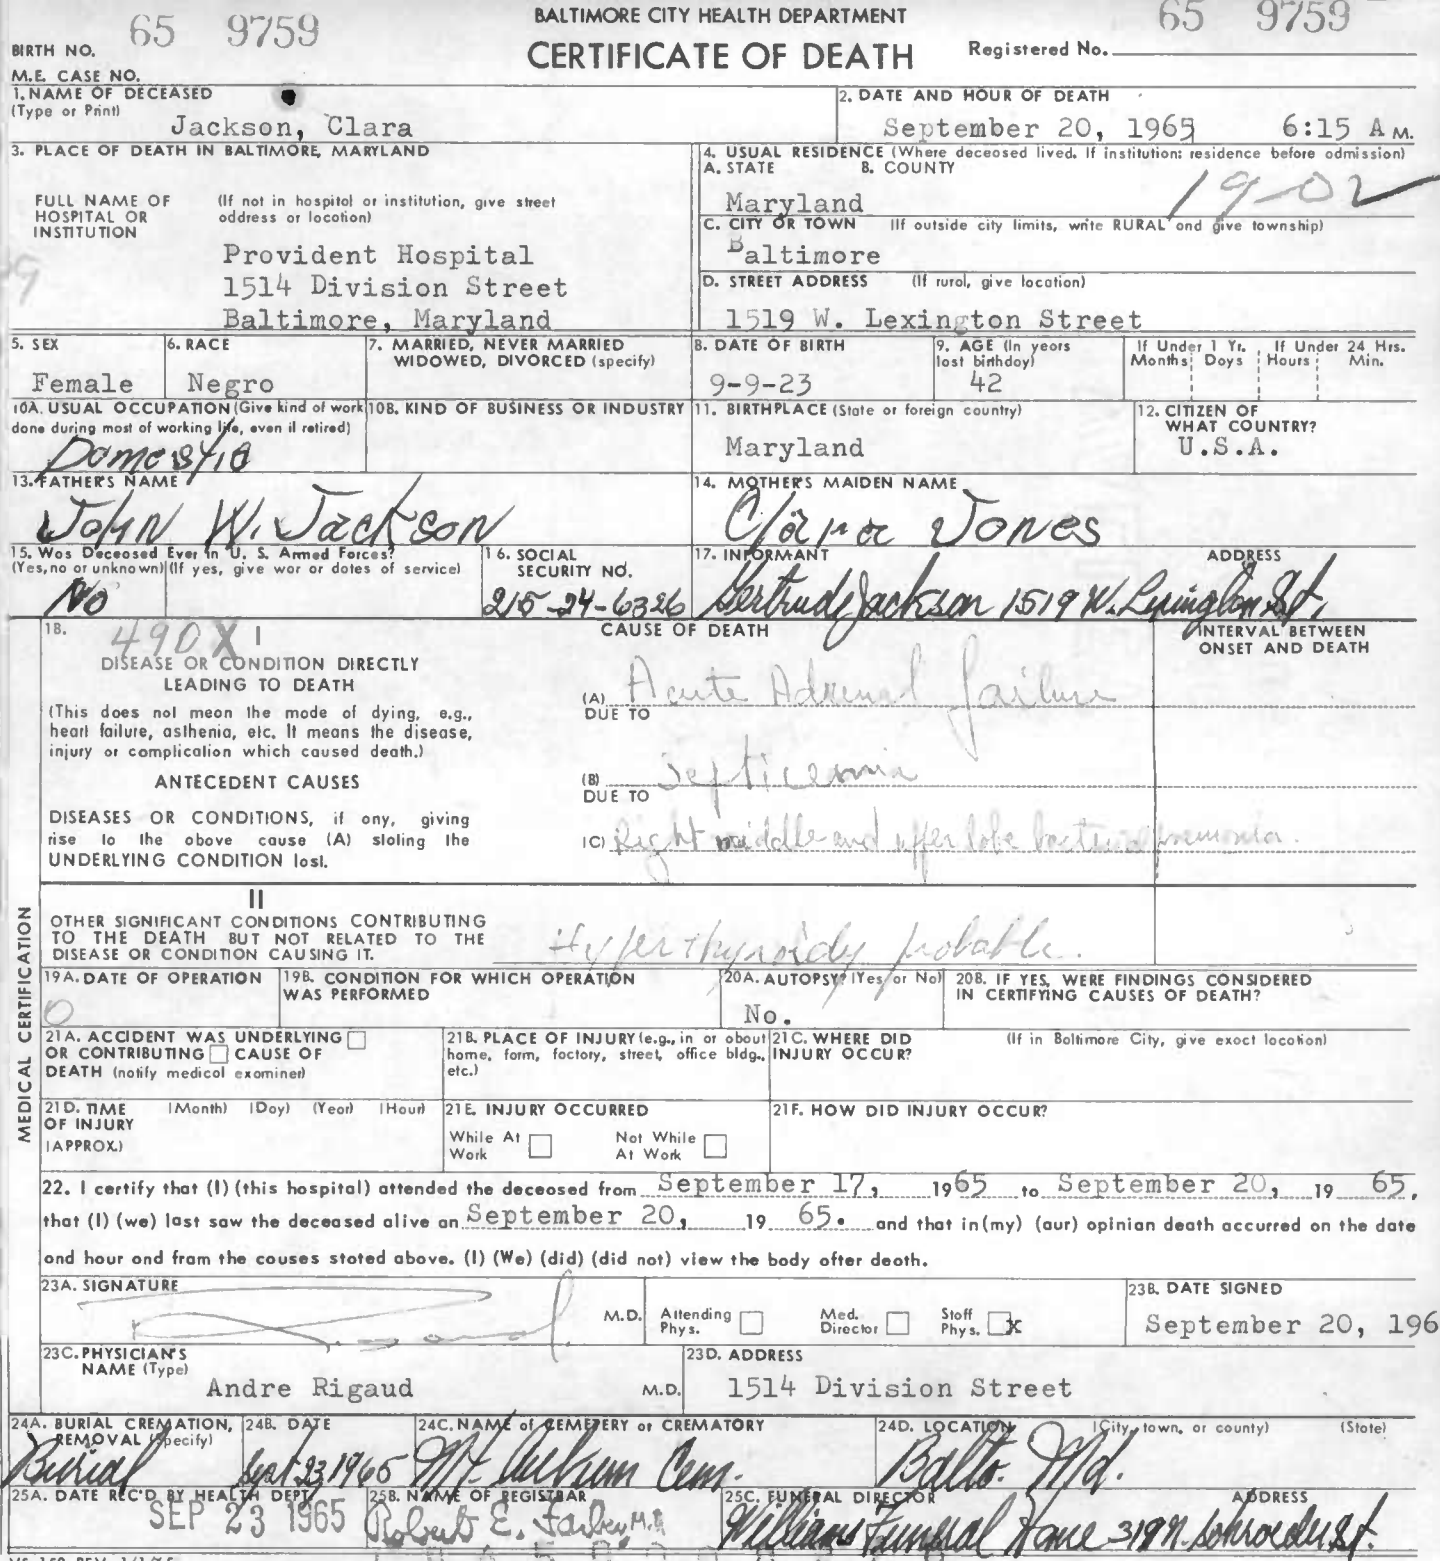 BALTIMORE CITY HEALTH DEPARTMENT
65 9759
65 9759
BIRTH NO.
CERTIFICATE OF DEATH
Registered No.
M.E. CASE NO.
1. NAME OF DECEASED
(Type or Print)
Jackson, Clara
2. DATE AND HOUR OF DEATH
September 20, 1965 6:15 A M.
3. PLACE OF DEATH IN BALTIMORE, MARYLAND
FULL NAME OF HOSPITAL OR INSTITUTION
(If not in hospital or institution, give street address or location)
Provident Hospital
1514 Division Street
Baltimore, Maryland
4. USUAL RESIDENCE (Where deceased lived. If institution: residence before admission)
A. STATE B. COUNTY
Maryland
19-02
C. CITY OR TOWN (If outside city limits, write RURAL and give township)
Baltimore
D. STREET ADDRESS (If rural, give location)
1519 W. Lexington Street
5. SEX
Female
6. RACE
Negro
7. MARRIED, NEVER MARRIED
WIDOWED, DIVORCED (specify)
8. DATE OF BIRTH
9-9-23
9. AGE (In years
last birthday)
42
If Under 1 Yr. If Under 24 Hrs.
Months Days Hours Min.
10A. USUAL OCCUPATION (Give kind of work
done during most of working life, even if retired)
Domestic
10B. KIND OF BUSINESS OR INDUSTRY
11. BIRTHPLACE (State or foreign country)
Maryland
12. CITIZEN OF
WHAT COUNTRY?
U.S.A.
13. FATHER'S NAME
John W. Jackson
14. MOTHER'S MAIDEN NAME
Clara Jones
15. Was Deceased Ever in U. S. Armed Forces?
(Yes, no or unknown) (If yes, give war or dates of service)
No
16. SOCIAL
SECURITY NO.
215-24-6326
17. INFORMANT ADDRESS
Gertrude Jackson 1519 W. Lexington St.
18. 490X I
CAUSE OF DEATH
INTERVAL BETWEEN
ONSET AND DEATH
DISEASE OR CONDITION DIRECTLY
LEADING TO DEATH
(This does not mean the mode of dying, e.g.,
heart failure, asthenia, etc. It means the disease,
injury or complication which caused death.)
(A) Acute Adrenal failure
DUE TO
ANTECEDENT CAUSES
(B) Septicemia
DUE TO
DISEASES OR CONDITIONS, if any, giving
rise to the above cause (A) stating the
UNDERLYING CONDITION last.
(C) Right middle and upper lobe bacterial pneumonia.
MEDICAL CERTIFICATION
II
OTHER SIGNIFICANT CONDITIONS CONTRIBUTING
TO THE DEATH BUT NOT RELATED TO THE
DISEASE OR CONDITION CAUSING IT.
probable.
19A. DATE OF OPERATION
0
19B. CONDITION FOR WHICH OPERATION
WAS PERFORMED
20A. AUTOPSY? (Yes or No)
No.
20B. IF YES, WERE FINDINGS CONSIDERED
IN CERTIFYING CAUSES OF DEATH?
21A. ACCIDENT WAS UNDERLYING
OR CONTRIBUTING CAUSE OF
DEATH (notify medical examiner)
21B. PLACE OF INJURY (e.g., in or about
home, farm, factory, street, office bldg.,
etc.)
21C. WHERE DID
INJURY OCCUR?
(If in Baltimore City, give exact location)
21D. TIME (Month) (Day) (Year) (Hour)
OF INJURY
(APPROX.)
21E. INJURY OCCURRED
While At Work
Not While At Work
21F. HOW DID INJURY OCCUR?
22. I certify that (I) (this hospital) attended the deceased from September 17, 1965 to September 20, 19 65,
that (I) (we) last saw the deceased alive on September 20, 19 65. and that in (my) (our) opinion death occurred on the date
and hour and from the causes stated above. (I) (We) (did) (did not) view the body after death.
23A. SIGNATURE
M.D.
Attending Phys.
Med. Director
Staff Phys. x
23B. DATE SIGNED
September 20, 196
23C. PHYSICIAN'S
NAME (Type)
Andre Rigaud M.D.
23D. ADDRESS
1514 Division Street
24A. BURIAL CREMATION,
REMOVAL (Specify)
Burial
24B. DATE
Sept. 23, 1965
24C. NAME of CEMETERY or CREMATORY
Mt. Auburn Cem.
24D. LOCATION (City, town, or county) (State)
Balto. Md.
25A. DATE REC'D BY HEALTH DEPT.
SEP 23 1965
25B. NAME OF REGISTRAR
Robert E. Farber, M.D.
25C. FUNERAL DIRECTOR ADDRESS
Williams Funeral Home 319 N. Schroeder St.